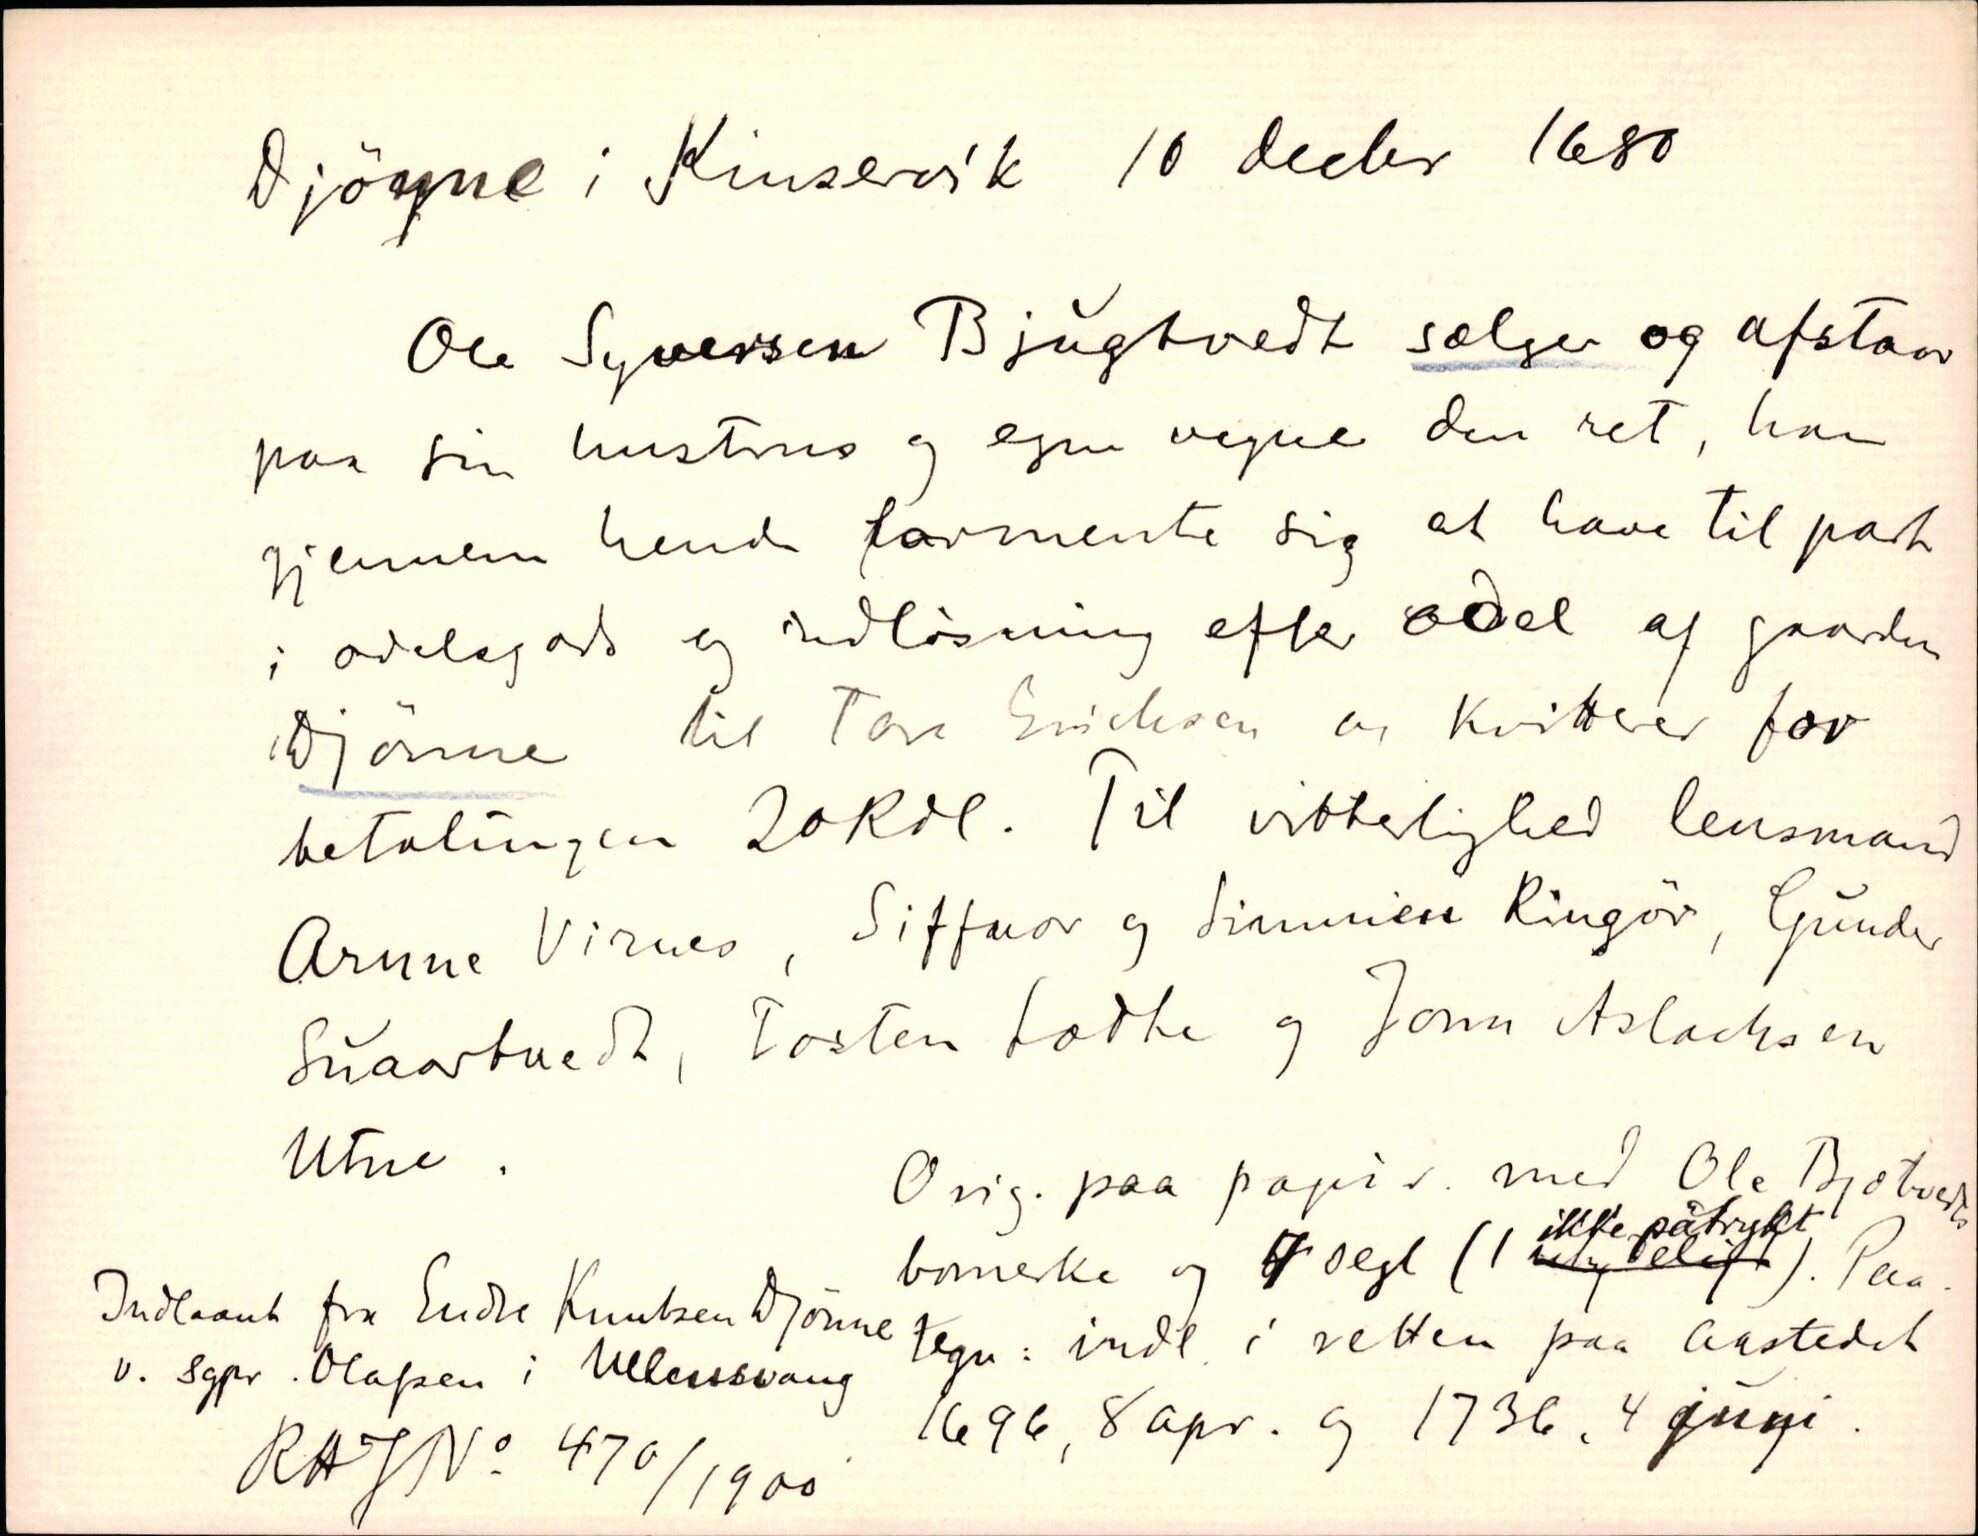 Djönne i Kinservik 10 decbr 1680
Ole Syversen Bjugtvedt sælger og afstaar
paa sin hustrus og egne vegne den ret, han
gjennem hende formente sig at have til part
i odelsgods og indløsning efter odel af gaarden
Djönne til Tore Erichsen og kvitterer for
betalingen 20 Rdl. Til vitterlighed lensmand
Arnne Virnes, Siffuor og Simmien Ringör, Gunder
Suaartuedt, Tosten Lodhe og Jonn Aslachsen
Utne.
Orig. paa papir. med Ole Bjotvedts
bomerke og 7 segl (1 ikke påtrykt). Paa-
tegn: indl. i retten paa aastedet
1696, 8 apr. og 1736, 4 juni.
Indlaant fra Endre Knutsen Djönne
v. sgpr. Olafsen i Ullensvang
RA J No. 470/1900